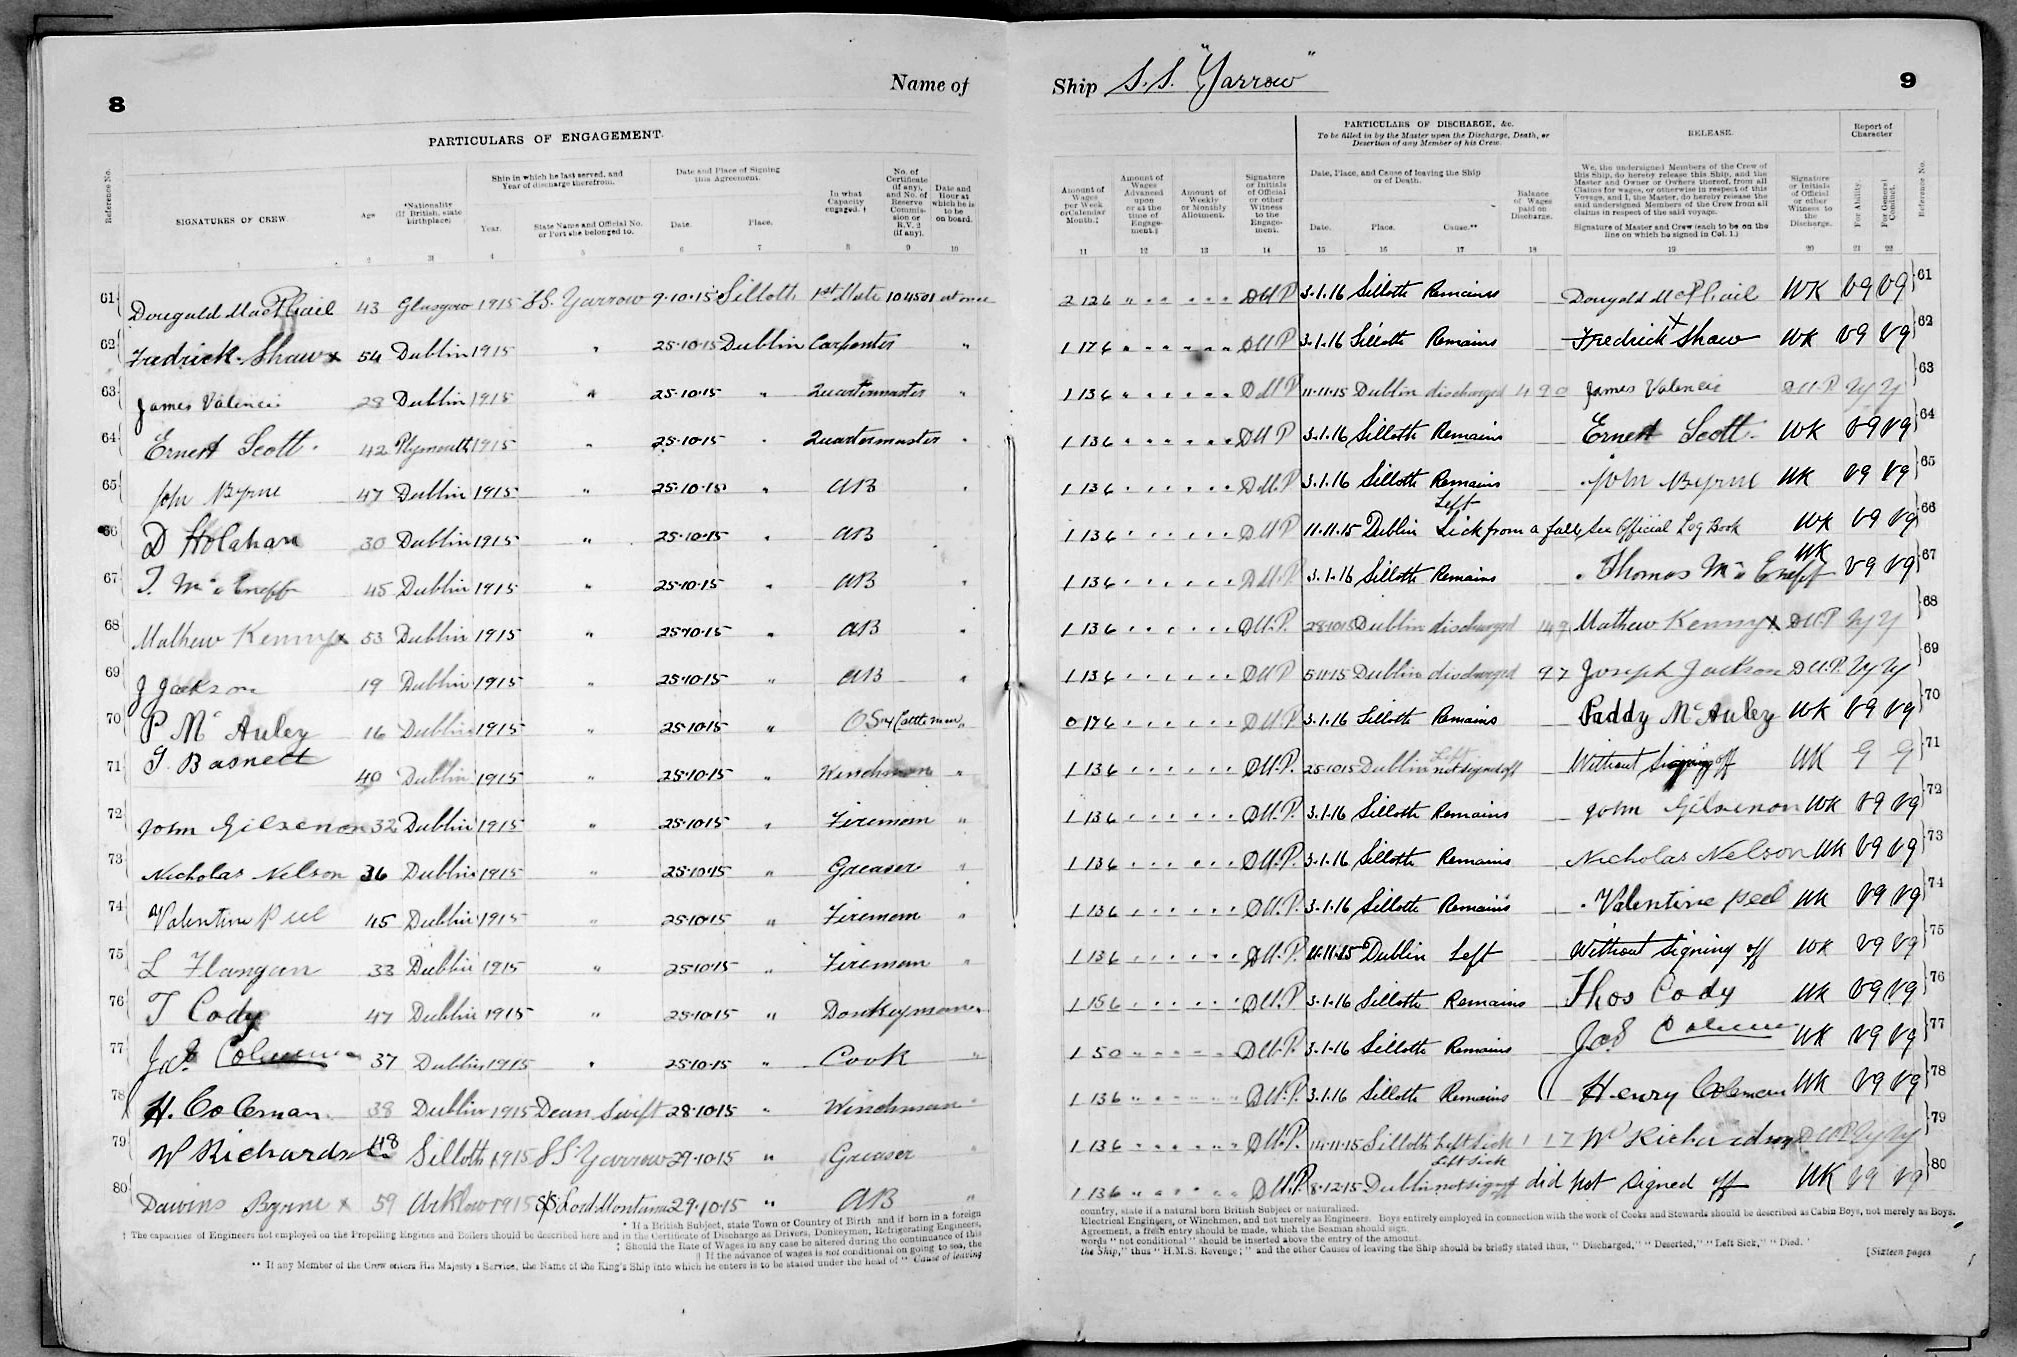 8
Name of
PARTICULARS OF ENGAGEMENT.
Reference No.
SIGNATURES OF CREW.
Age
*Nationality (If British, state birthplace)
Ship in which he last served, and Year of discharge therefrom.
Year.
State Name and Official No. or Port she belonged to.
Date and Place of Signing this Agreement.
Date.
Place.
In what Capacity engaged. †
No. of Certificate (if any), and No. of Reserve Commission or R.V. 2 (if any).
Date and Hour at which he is to be on board.
1 2 3 4 5 6 7 8 9 10
61 Dougald MacPhail 43 Glasgow 1915 SS. Yarrow 9.10.15 Silloth 1st Mate 104501 at once
62 Fredrick Shaw x 54 Dublin 1915 " 25.10.15 Dublin Carpenter "
63 James Valencie 28 Dublin 1915 " 25.10.15 " Quartermaster "
64 Ernest Scott. 42 Plymouth 1915 " 25.10.15 " Quartermaster "
65 John Byrne 47 Dublin 1915 " 25.10.15 " AB "
66 D Holahan 30 Dublin 1915 " 25.10.15 " AB
67 T. Mc Eneff 45 Dublin 1915 " 25.10.15 " AB "
68 Mathew Kenny x 53 Dublin 1915 " 25.10.15 " AB "
69 J Jackson 19 Dublin 1915 " 25.10.15 " AB "
70 P Mc Auley 16 Dublin 1915 " 25.10.15 " "
71 Basnett 40 Dublin 1915 25.10.15 " Winchman "
72 John Gilsenon 32 Dublin 1915 " 25.10.15 " Fireman "
73 Nicholas Nelson 36 Dublin 1915 " 25.10.15 " Greaser "
74 Valentine Peel 45 Dublin 1915 " 25.10.15 " Fireman "
75 L Flangan 33 Dublin 1915 " 25.10.15 " Fireman "
76 T Cody 47 Dublin 1915 " 25.10.15 " Donkeyman "
77 Jas 37 Dublin 1915 " 25.10.15 " Cook "
78 H. Coleman. 38 Dublin 1915 Dean Swift 28.10.15 " Winchman "
79 W Richardson 48 Silloth 1915 SS. Yarrow 29.10.15 " Greaser "
80 Byrne x 59 Arklow 1915 SS Lord Montana 29.10.15 " AB "
* If a British Subject, state Town or Country of Birth and if born in a foreign
† The capacities of Engineers not employed on the Propelling Engines and Boilers should be described here and in the Certificate of Discharge as Drivers, Donkeymen, Refrigerating Engineers,
‡ Should the Rate of Wages in any case be altered during the continuance of this
|| If the advance of wages is not conditional on going to sea, the
** If any Member of the Crew enters His Majesty's Service, the Name of the King's Ship into which he enters is to be stated under the head of "Cause of leaving
Ship S.S. "Yarrow"
9
PARTICULARS OF DISCHARGE, &c.
To be filled in by the Master upon the Discharge, Death, or Desertion of any Member of his Crew.
RELEASE.
Report of Character
Amount of Wages per Week or Calendar Month.‡
Amount of Wages Advanced upon or at the time of Engagement.§
Amount of Weekly or Monthly Allotment.
Signature or Initials of Official or other Witness to the Engagement.
Date, Place, and Cause of leaving the Ship or of Death.
Date.
Place.
Cause.**
Balance of Wages paid on Discharge.
We, the undersigned Members of the Crew of this Ship, do hereby release this Ship, and the Master and Owner or Owners thereof, from all Claims for wages, or otherwise in respect of this Voyage, and I, the Master, do hereby release the said undersigned Members of the Crew from all claims in respect of the said voyage.
Signature of Master and Crew (each to be on the line on which he signed in Col. 1.)
Signature or Initials of Official or other Witness to the Discharge.
For Ability.
For General Conduct.
Reference No.
11 12 13 14 15 16 17 18 19 20 21 22
2 12 6 3.1.16 Silloth Remains Dougald McPhail WK VG VG 61
1 17 6 3.1.16 Silloth Remains Fredrick x Shaw WK VG VG 62
1 13 6 11.11.15 Dublin discharged 4 9 0 James Valencie 63
1 13 6 3.1.16 Silloth Remains Ernest Scott. WK VG VG 64
1 13 6 3.1.16 Silloth Remains John Byrne WK VG VG 65
1 13 6 11.11.15 Dublin Left Sick from a fall, See Official Log Book WK VG VG 66
1 13 6 3.1.16 Silloth Remains Thomas Mc Eneff WK VG VG 67
1 13 6 28.10.15 Dublin discharged Mathew Kenny x 68
1 13 6 5.11.15 Dublin discharged 9 7 Joseph Jackson 69
0 17 6 3.1.16 Silloth Remains Paddy Mc Auley WK VG VG 70
1 13 6 25.10.15 Dublin Left not signed off Without Signing off WK G G 71
1 13 6 3.1.16 Silloth Remains John Gilsenon WK VG VG 72
1 13 6 3.1.16 Silloth Remains Nicholas Nelson WK VG VG 73
1 13 6 3.1.16 Silloth Remains Valentine Peel WK VG VG 74
1 13 6 11.11.15 Dublin Left Without Signing off WK VG VG 75
1 15 6 3.1.16 Silloth Remains Thos Cody WK VG VG 76
1 5 0 3.1.16 Silloth Remains Jas WK VG VG 77
1 13 6 3.1.16 Silloth Remains Henry Coleman WK VG VG 78
1 13 6 14.11.15 Silloth Left Sick 1 17 Wm Richardson 79
1 13 6 8.12.15 Dublin Left Sick not sign off did not signed off WK VG VG 80
country, state if a natural born British Subject or naturalized.
Electrical Engineers, or Winchmen, and not merely as Engineers. Boys entirely employed in connection with the work of Cooks and Stewards should be described as Cabin Boys, not merely as Boys.
Agreement, a fresh entry should be made, which the Seaman should sign.
words "not conditional" should be inserted above the entry of the amount.
the Ship," thus "H.M.S. Revenge;" and the other Causes of leaving the Ship should be briefly stated thus, "Discharged," "Deserted," "Left Sick," "Died."
[Sixteen pages